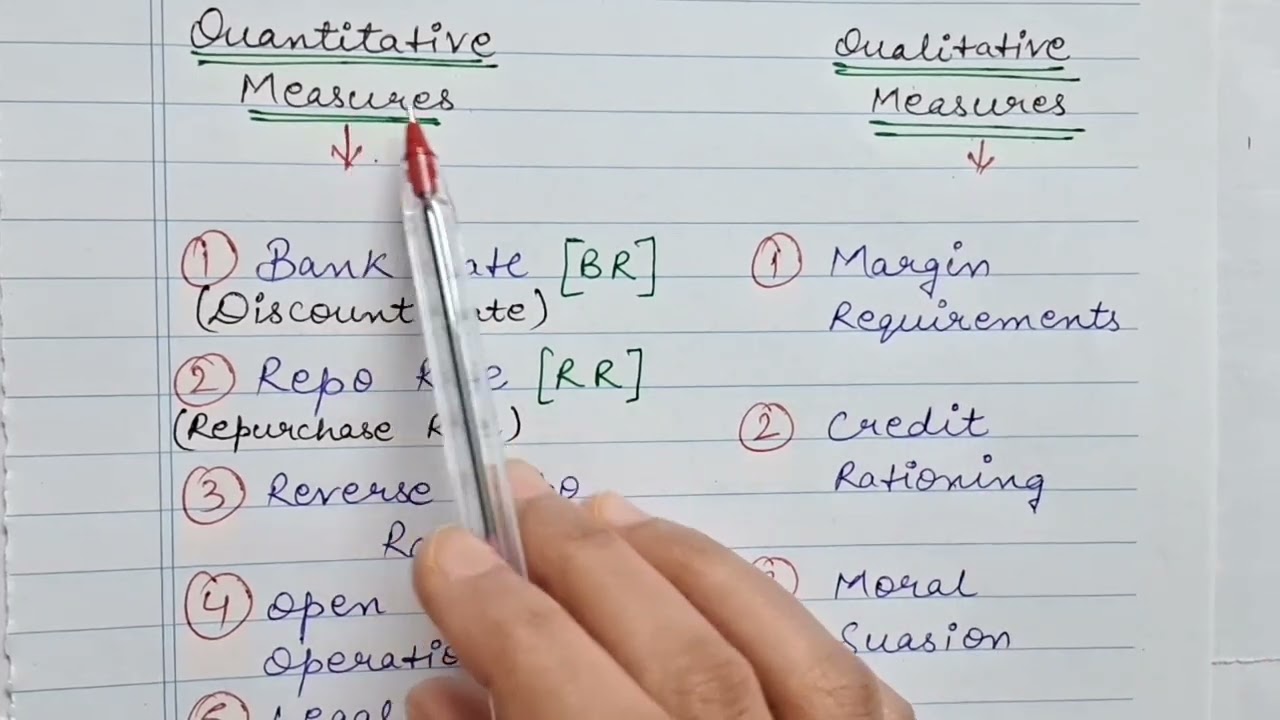 Quantitative
Measures
① Bank [BR]
(Discount
② Repo [RR]
(Repurchase
③ Reverse
④ Open
Qualitative
Measures
① Margin
Requirements
② Credit
Rationing
Moral
Suasion